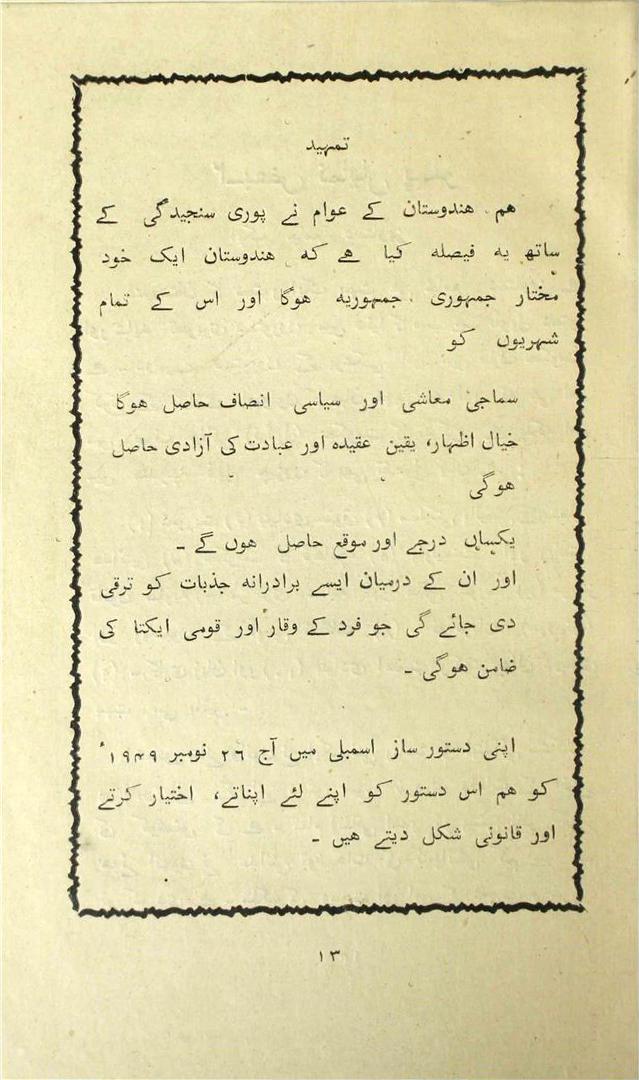 تمہید
ہم ہندوستان کے عوام نے پوری سنجیدگی کے
ساتھ یہ فیصلہ کیا ہے کہ ہندوستان ایک خود
مختار جمہوری جمہوریہ ہوگا اور اس کے تمام
شہریوں کو
سماجی معاشی اور سیاسی انصاف حاصل ہوگا
خیال اظہار، یقین عقیدہ اور عبادت کی آزادی حاصل
ہوگی
یکساں درجے اور موقع حاصل ہوں گے ۔
اور ان کے درمیان ایسے برادرانہ جذبات کو ترقی
دی جائے گی جو فرد کے وقار اور قومی ایکتا کی
ضامن ہوگی ۔
اپنی دستور ساز اسمبلی میں آج ۲۶ نومبر ۱۹۴۹ء
کو ہم اس دستور کو اپنے لئے اپناتے، اختیار کرتے
اور قانونی شکل دیتے ہیں ۔
۱۳